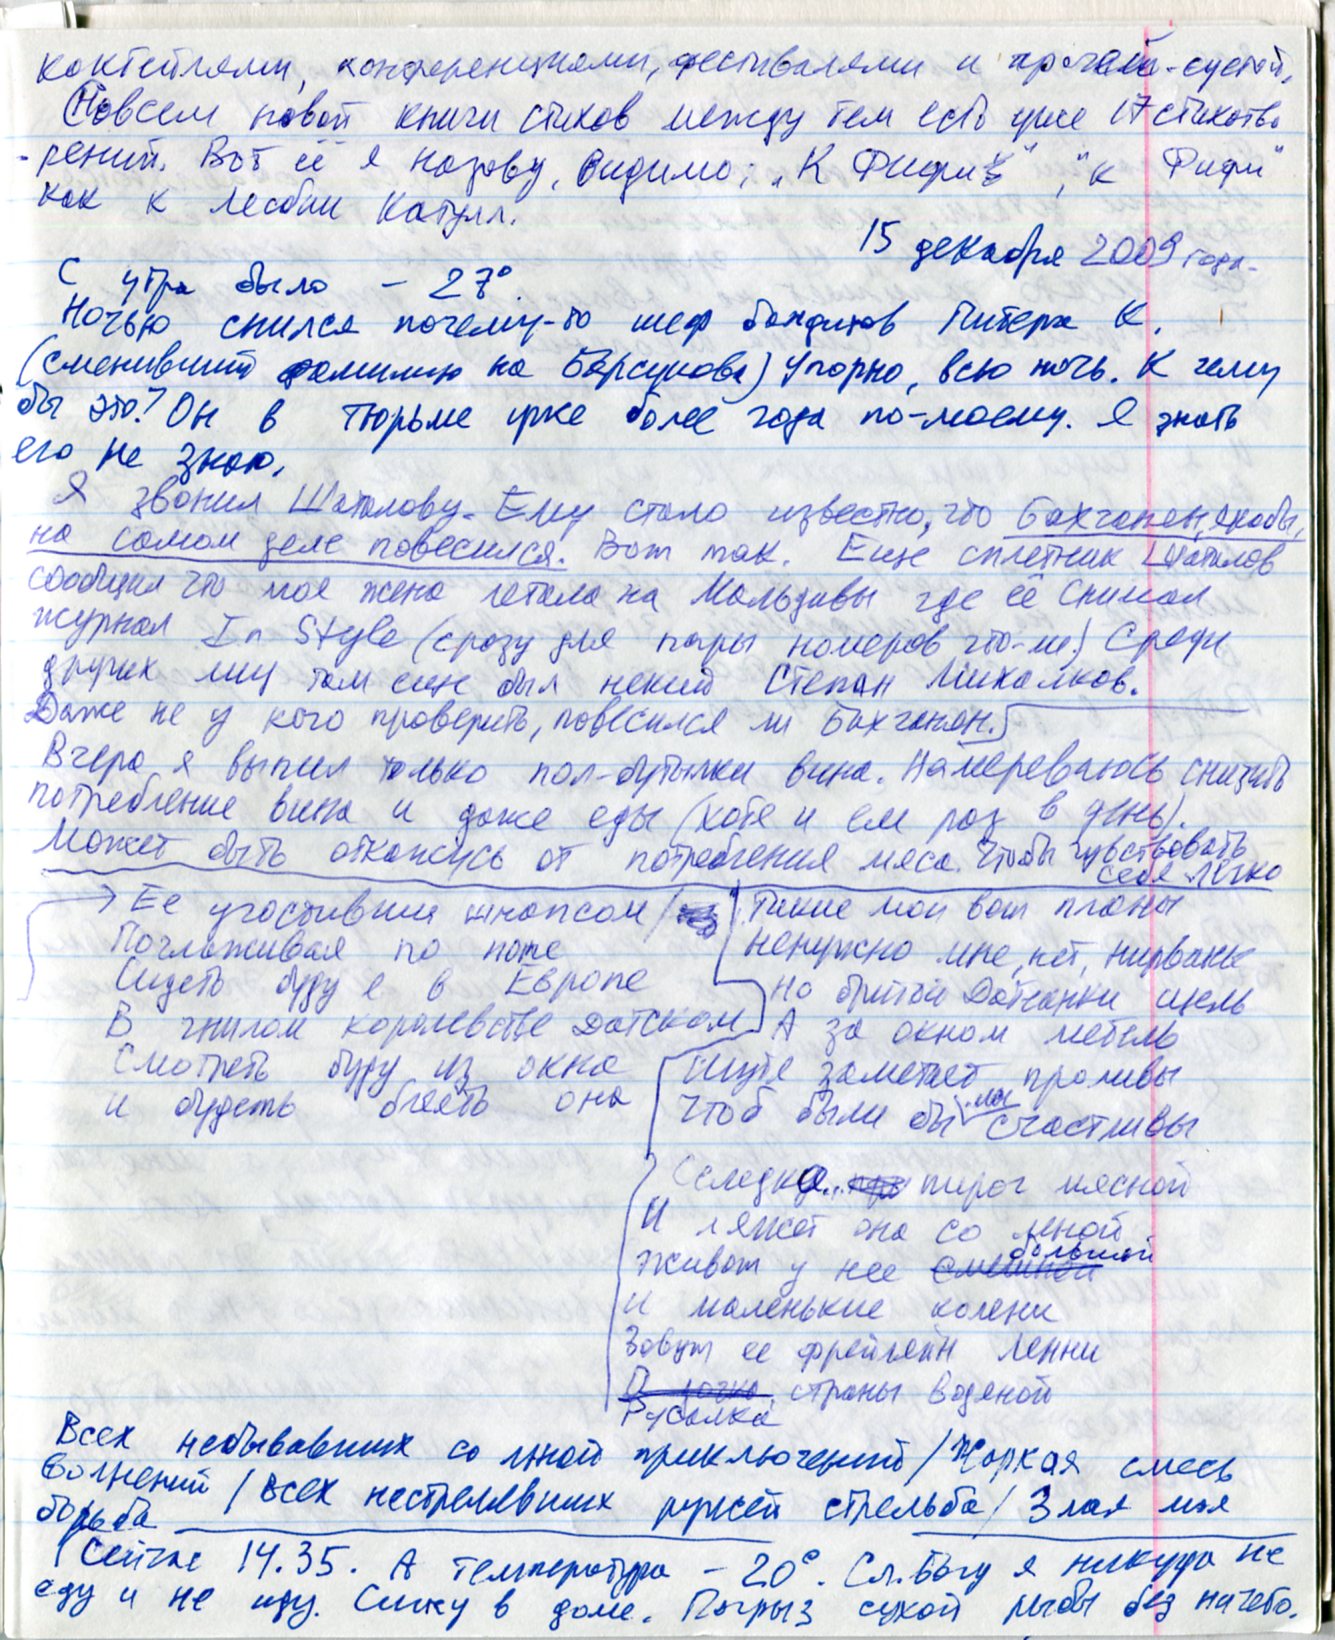 коктейлями, конференциями, фестивалями и прочей суетой.
Совсем новой книги стихов между тем есть уже 17 стихотво
-рений. Вот её я назову, видимо: „К Фифи", "к Фифи"
как к Лесбии Катулл.
15 декабря 2009 года.
С утра было – 27°.
Ночью снился почему-то шеф бандитов Питера К.
(сменивший фамилию на Барсукова) Упорно, всю ночь. К чему
бы это? Он в тюрьме уже более года по-моему. Я знать
его не знаю.
Я звонил Шаталову. Ему стало известно, что Бахчанян, якобы,
на самом деле повесился. Вот так. Еще сплетник Шаталов
сообщил что моя жена летала на Мальдивы где её снимал
журнал In Style (сразу для пары номеров что-ли) Среди
других лиц там еще был некий Степан Михалков.
Даже не у кого проверить, повесился ли Бахчанян.
Вчера я выпил только пол-бутылки вина. Намереваюсь снизить
потребление вина и даже еды (хотя и ем раз в день).
Может быть откажусь от потребления мяса. Чтобы чувствовать
себя легко
Ее угостивши шнапсом /
Поглаживая по попе
Сидеть буду я в Европе
В гнилом королевстве датском
Смотреть буду из окна
и будет блеять она
Такие мои вот планы
ненужно мне, нет, нирваны
Но бритой Датчанки щель
А за окном метель
Пусть заметает проливы
Чтоб были бы мы счастливы
Селедка... пирог мясной
И ляжет она со мной
Живот у нее смешной большой
и маленькие колени
Зовут ее фрейлейн Ленни
страны водяной
Русалка
Всех небывавших со мной приключений / Жаркая смесь
волнений / Всех нестрелявших ружей стрельба / Злая моя
борьба
Сейчас 14.35. А температура – 20°. Сл. Богу я никуда не
еду и не иду. Сижу в доме. Погрыз сухой рыбы без ничего.